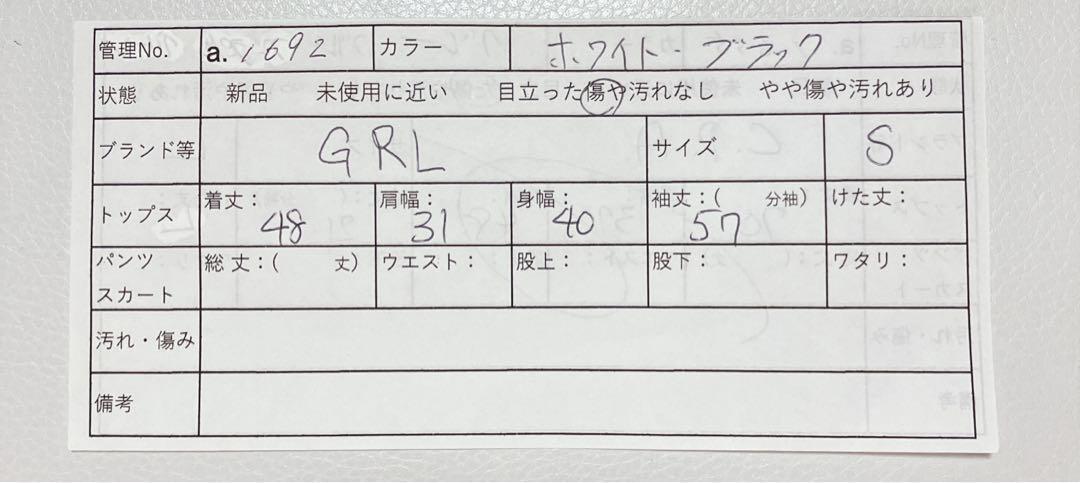 管理No. a.1692 カラー ホワイト・ブラック
状態 新品 未使用に近い 目立った傷や汚れなし やや傷や汚れあり
ブランド等 GRL サイズ S
トップス 着丈： 48 肩幅： 31 身幅： 40 袖丈：( 分袖) 57 けた丈：
パンツ 総丈：( 丈) ウエスト： 股上： 股下： ワタリ：
スカート
汚れ・傷み
備考